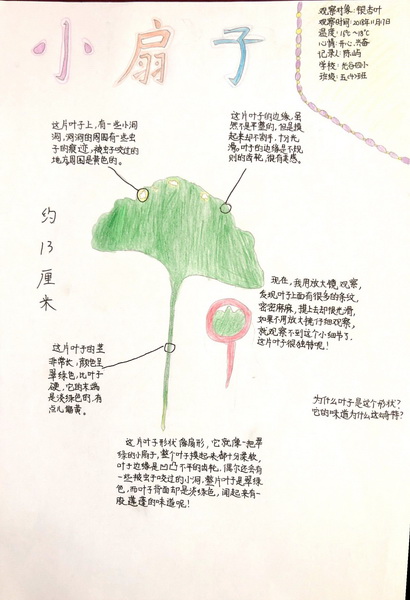 小扇子
观察对象:银杏叶
观察时间:2018年11月7日
温度:15℃~18℃
心情:开心、兴奋
记录人:陈屿
学校:光谷四小
班级:五(4)班
这片叶子上,有一些小洞
洞,洞洞的周围有一些虫
子的痕迹,被虫子咬过的
地方周围是黄色的。
这片叶子的边缘,虽
然不是平整的,但是摸
起来却不割手,十分光
滑。叶子的边缘是不规
则的齿轮,很有美感。
约13厘米
现在,我用放大镜观察,
发现叶子上面有很多的条纹,
密密麻麻,摸上去却很光滑,
如果不用放大镜仔细观察,
就观察不到这个小细节了,
这片叶子很独特呢!
这片叶子的茎
非常长,颜色呈
翠绿色,比叶子
硬,它的末端
是淡绿色的,有
点儿偏黄。
为什么叶子是这个形状?
它的味道为什么这么奇特?
这片叶子形状像扇形,它就像一把翠
绿的小扇子,整个叶子摸起来都十分柔软,
叶子边缘是凹凸不平的齿轮,偶尔还会有
一些被虫子咬过的小洞。整片叶子是翠绿
色,而叶子背面却是淡绿色,闻起来有一
股莲蓬的味道呢!